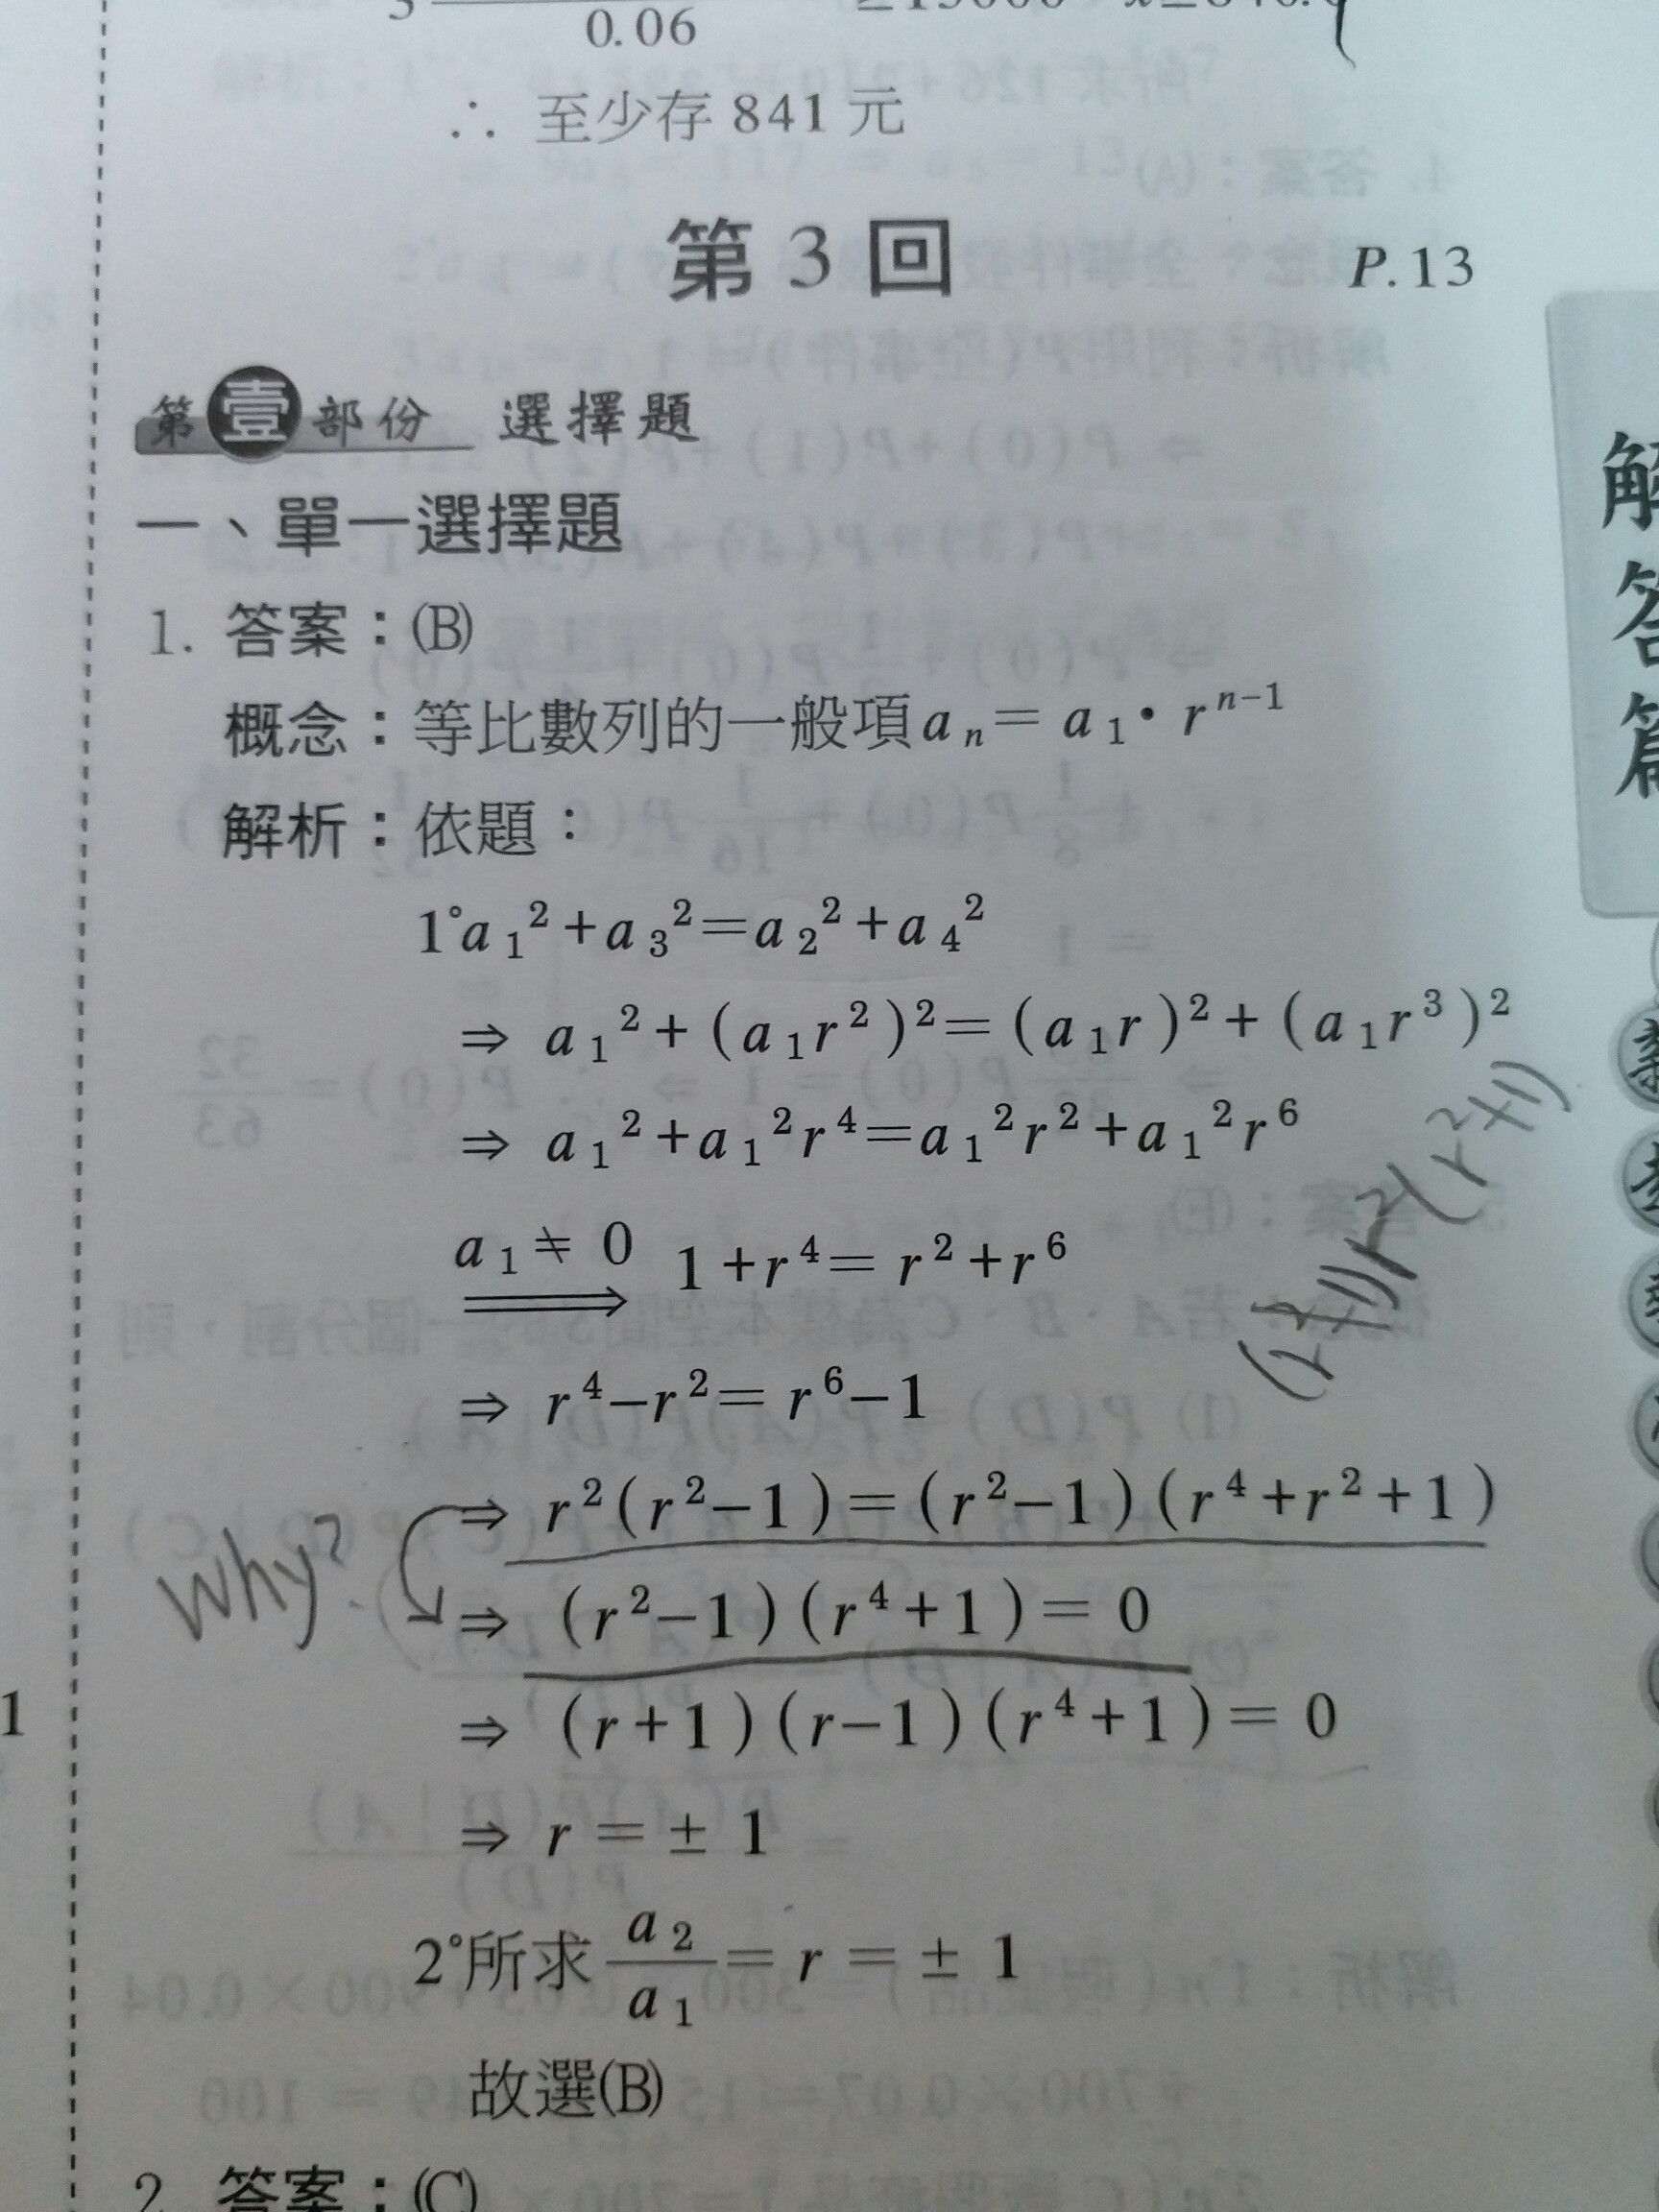 0.06
∴ 至少存 841 元
第 3 回 P.13
第壹部份 選擇題
一、單一選擇題
1. 答案：(B)
概念：等比數列的一般項 aₙ = a₁・rⁿ⁻¹
解析：依題：
1° a₁² + a₃² = a₂² + a₄²
⇒ a₁² + (a₁r²)² = (a₁r)² + (a₁r³)²
⇒ a₁² + a₁²r⁴ = a₁²r² + a₁²r⁶
a₁ ≠ 0 ⟹ 1 + r⁴ = r² + r⁶
⇒ r⁴ − r² = r⁶ − 1
⇒ r²(r² − 1) = (r² − 1)(r⁴ + r² + 1)
why?
⇒ (r² − 1)(r⁴ + 1) = 0
⇒ (r + 1)(r − 1)(r⁴ + 1) = 0
⇒ r = ± 1
2° 所求 a₂/a₁ = r = ± 1
故選(B)
2. 答案：(C)
解答篇
1